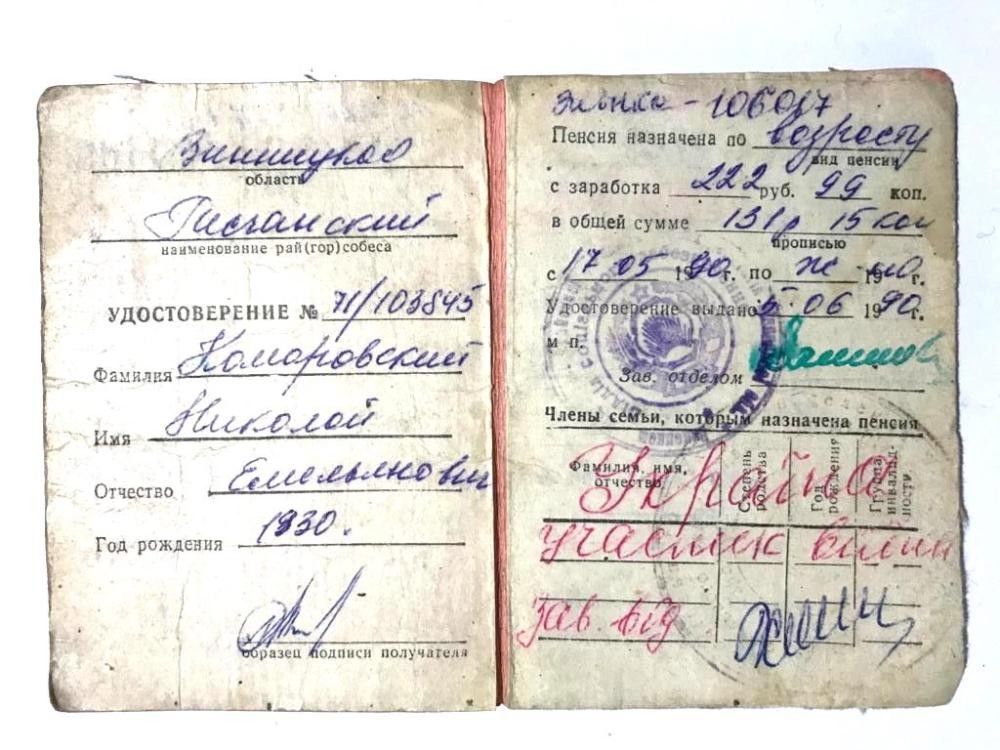 Винницкая
область
Песчанский
наименование рай(гор)собеса
УДОСТОВЕРЕНИЕ № 71/103845
Фамилия Комаровский
Имя Николай
Отчество Емельянович
Год рождения 1930.
образец подписи получателя
106017
Пенсия назначена по возрасту
вид пенсии
с заработка 222 руб. 99 коп.
в общей сумме 131р 15 коп
прописью
с 17 05 1990г. по 19 г.
Удостоверение выдано 5. 06 1990г.
м п.
Зав. отделом
Члены семьи, которым назначена пенсия
Фамилия, имя, отчество
Степень родства
Год рождения
Группа инвалидности
Україна
участник війни
Зав від